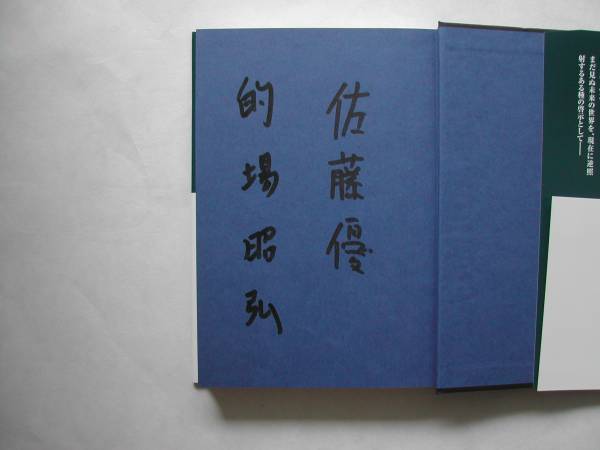 まだ見ぬ未来の世界を、現在に逆照
射するある種の啓示として——
佐藤優
的場昭弘